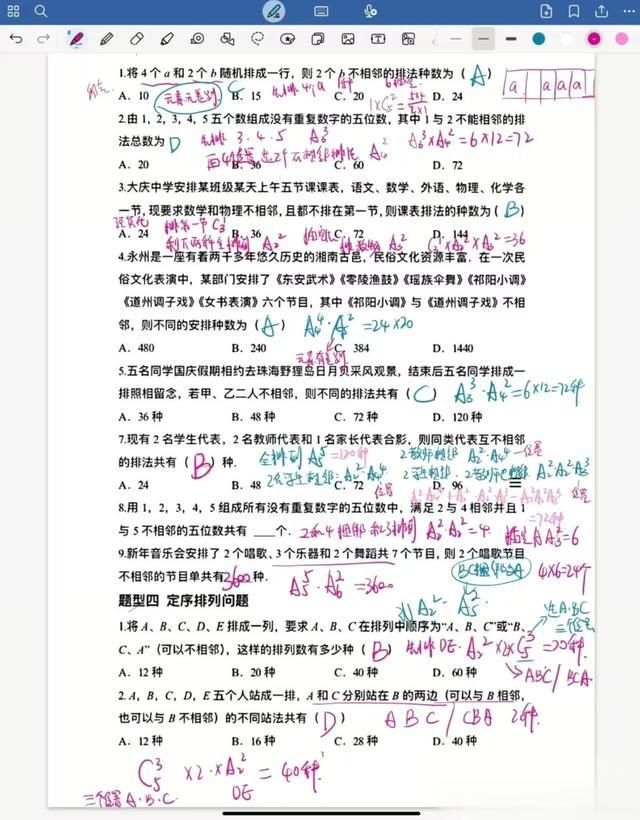 1.将 4 个 a 和 2 个 b 随机排成一行，则 2 个 b 不相邻的排法种数为（ A ）
a a a a
A. 10 B. 15 C. 20 D. 24
元素无差别
2.由 1，2，3，4，5 五个数组成没有重复数字的五位数，其中 1 与 2 不能相邻的排
法总数为 D 先排 3.4.5 A₃³ A₃³×A₄²=6×12=72
A. 20 B. 36 C. 60 D. 72
3.大庆中学安排某班级某天上午五节课课表，语文、数学、外语、物理、化学各
一节，现要求数学和物理不相邻，且都不排在第一节，则课表排法的种数为（ B ）
A. 24 B. 36 C. 72 D. 144
排第一节 C₃¹ A₂² A₃² C₃¹×A₂²×A₃²=36
4.永州是一座有着两千多年悠久历史的湘南古邑，民俗文化资源丰富．在一次民
俗文化表演中，某部门安排了《东安武术》《零陵渔鼓》《瑶族伞舞》《祁阳小调》
《道州调子戏》《女书表演》六个节目，其中《祁阳小调》与《道州调子戏》不相
邻，则不同的安排种数为（ A ） A₄⁴·A₅² =24×20
A. 480 B. 240 C. 384 D. 1440
元素有差别
5.五名同学国庆假期相约去珠海野狸岛日月贝采风观景，结束后五名同学排成一
排照相留念，若甲、乙二人不相邻，则不同的排法共有（ C ） A₃³·A₄²=6×12=72种
A. 36 种 B. 48 种 C. 72 种 D. 120 种
7.现有 2 名学生代表，2 名教师代表和 1 名家长代表合影，则同类代表互不相邻
全排列 A₅⁵=120种 2教师相邻 A₂²·A₄⁴
的排法共有（ B ）种．
A. 24 B. 48 C. 72 D. 96
位置
8.用 1，2，3，4，5 组成所有没有重复数字的五位数中，满足 2 与 4 相邻并且 1
=72种
与 5 不相邻的五位数共有 ____个． 2和4捆绑和3排列 A₂²·A₂²=4. 插空 A₃²=6
9.新年音乐会安排了 2 个唱歌、3 个乐器和 2 个舞蹈共 7 个节目，则 2 个唱歌节目
4×6=24个
不相邻的节目单共有 3600 种． A₅⁵·A₆²=3600
题型四 定序排列问题
1.将 A、B、C、D、E 排成一列，要求 A、B、C 在排列中顺序为“A、B、C”或“B、
C、A”（可以不相邻），这样的排列数有多少种（ B ） 先排 DE·A₂²×2×C₅³=20种
A. 12 种 B. 20 种 C. 40 种 D. 60 种
ABC/BCA
2.A，B，C，D，E 五个人站成一排，A 和 C 分别站在 B 的两边（可以与 B 相邻，
也可以与 B 不相邻）的不同站法共有（ D ） ABC/CBA 2种.
A. 12 种 B. 16 种 C. 28 种 D. 40 种
C₅³ ×2×A₂² = 40种
三个位置 A·B·C. DE